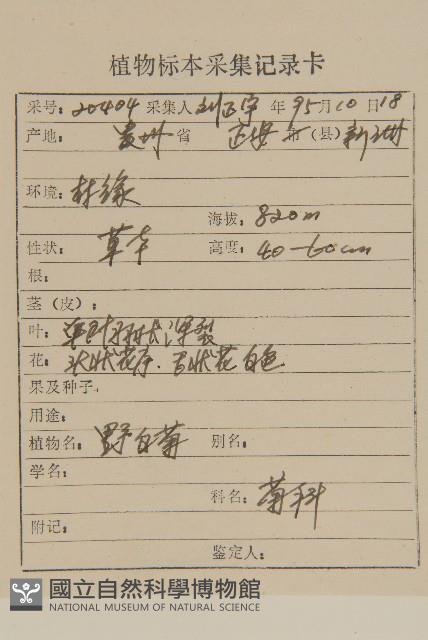 植物标本采集记录卡
采号: 20404 采集人 刘正宇 年 95 月 10 日 18
产地: 贵州 省 正安 市(县)
环境: 林缘
海拔: 820m
性状: 草本 高度: 40-60cm
根:
茎(皮):
叶: 羽状深裂
花: 状花序. 舌状花白色
果及种子.
用途:
植物名: 野白菊 别名:
学名:
科名: 菊科
附记:
鉴定人:
國立自然科學博物館
NATIONAL MUSEUM OF NATURAL SCIENCE